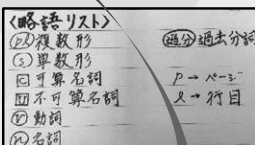 〈略語リスト〉
(pl) 複数形
(s) 単数形
[C] 可算名詞
[U] 不可算名詞
(v) 動詞
(n) 名詞
(過分) 過去分詞
P → ページ
l → 行目